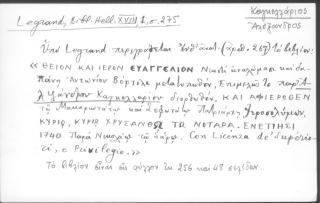 Legrand, Bibl. Hell. XVIII 1, σ. 275
Καγκελλάριος
Ἀλέξανδρος
Ὑπὸ Legrand περιγράφεται (ἀριθ. 267) τὸ βιβλίον:
«ΘΕΙΟΝ ΚΑΙ ΙΕΡΟΝ ΕΥΑΓΓΕΛΙΟΝ Νεωστὶ ἀναλώμασι καὶ δα-
πάνῃ Ἀντωνίου Βόρτολι μετατυπωθέν, Ἐπιμελῶς τε παρ' Ἀ-
λεξάνδρου Καγκελλαρίου διορθωθέν, ΚΑΙ ΑΦΙΕΡΩΘΕΝ
τῷ Μακαριωτάτῳ καὶ Σοφωτάτῳ Πατριάρχῃ Ἱεροσολύμων,
ΚΥΡΙῼ, ΚΥΡΙῼ ΧΡΥΣΑΝΘῼ ΤΩ ΝΟΤΑΡΑ. ΕΝΕΤΙΗΣΙ
1740 Παρὰ Νικολάῳ τῷ Σάρῳ. Con Licenza de' Superio-
ri, e Privilegio.»
Τὸ βιβλίον εἶναι εἰς φύλλον ἐκ 256 καὶ 48 σελίδων.